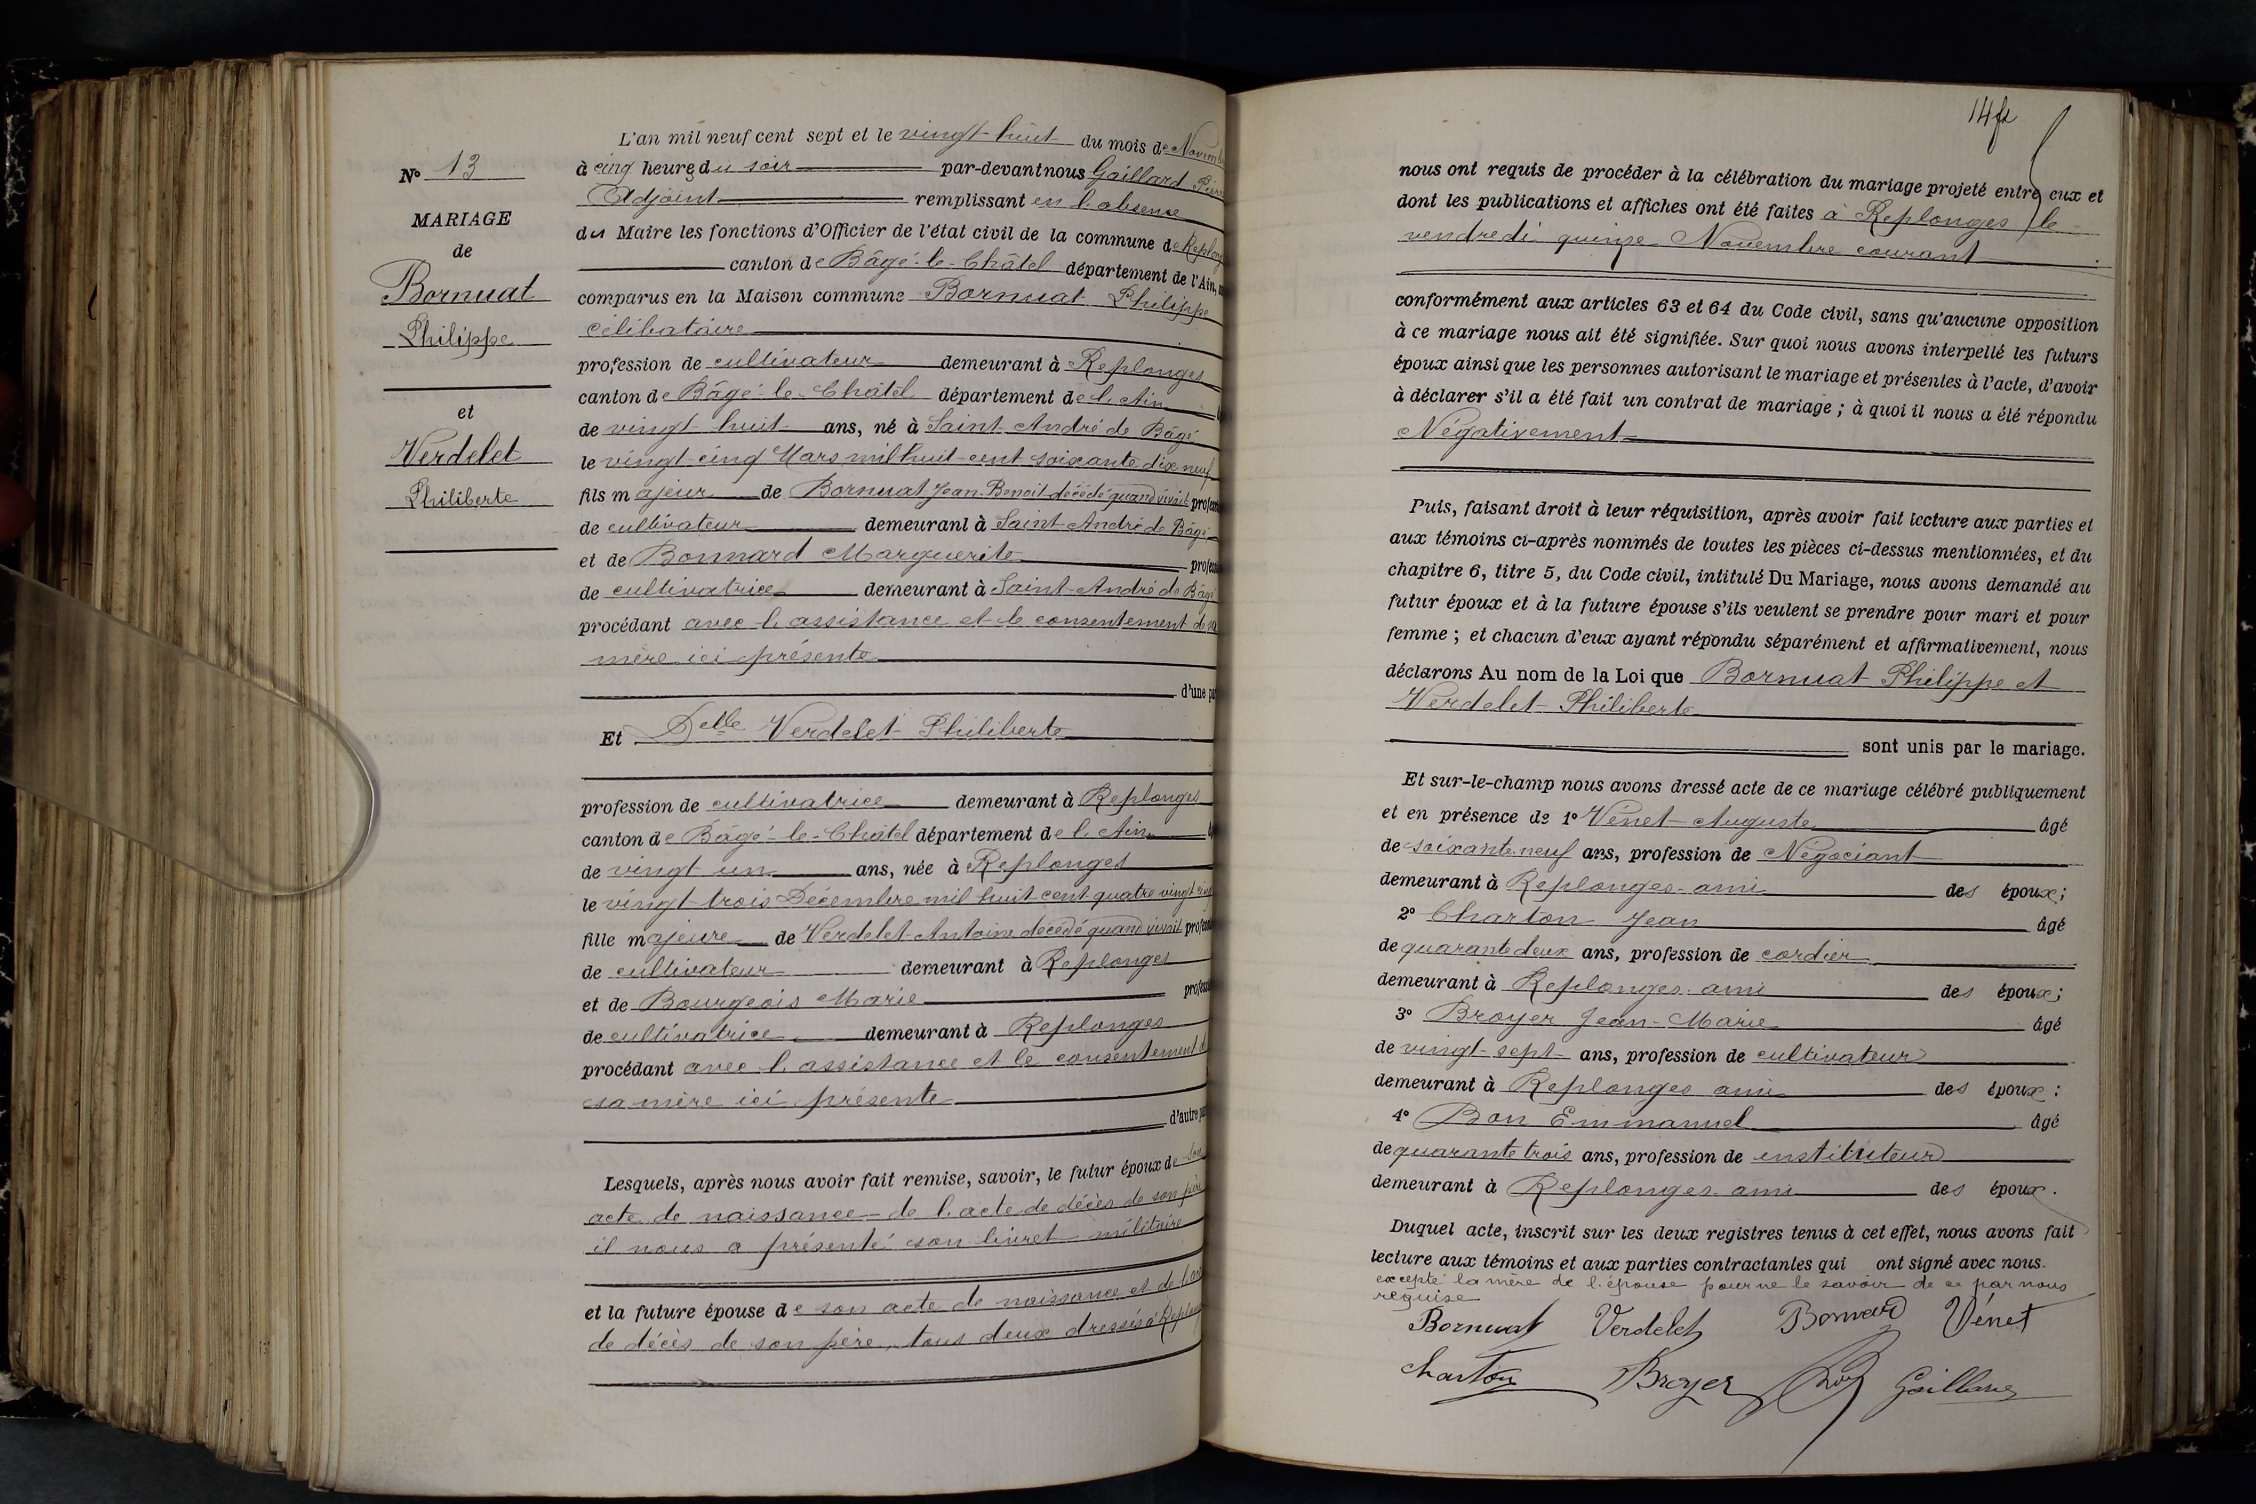 N° 13
MARIAGE
de
Bornuat
Philippe
et
Verdelet
Philiberte
L'an mil neuf cent sept et le vingt-huit du mois de Novem
à cinq heures du soir par-devant nous Gaillard
Adjoint remplissant en l'absence
du Maire les fonctions d'Officier de l'état civil de la commune de Replong
canton de Bâgé-le-Châtel département de l'Ain,
comparus en la Maison commune Bornuat Philippe
célibataire
profession de cultivateur demeurant à Replonges
canton de Bâgé-le-Châtel département de l'Ain
de vingt huit ans, né à Saint André de Bâgé
le vingt-cinq Mars mil huit-cent soixante dix neuf
fils majeur de Bornuat Jean-Benoit décédé quand vivait profes
de cultivateur demeurant à Saint-André de Bâgé
et de Bonnard Marguerite profes
de cultivatrice demeurant à Saint-André de Bâgé
procédant avec l'assistance et le consentement de sa
mère ici présente
d'une pa
Et Delle Verdelet Philiberte
profession de cultivatrice demeurant à Replonges
canton de Bâgé-le-Châtel département de l'Ain
de vingt un ans, née à Replonges
le vingt-trois Décembre mil huit cent quatre vingt
fille majeure de Verdelet Antoine décédé quand vivait profes
de cultivateur demeurant à Replonges
et de Bourgeois Marie profes
de cultivatrice demeurant à Replonges
procédant avec l'assistance et le consentement d
sa mère ici présente
d'autre pa
Lesquels, après nous avoir fait remise, savoir, le futur époux de son
acte de naissance - de l'acte de décès de son père
il nous a présenté son livret militaire
et la future épouse de son acte de naissance et de l'ac
de décès de son père, tous deux dressés à Replong
14
nous ont requis de procéder à la célébration du mariage projeté entre eux et
dont les publications et affiches ont été faites à Replonges le
vendredi quinze Novembre courant
conformément aux articles 63 et 64 du Code civil, sans qu'aucune opposition
à ce mariage nous ait été signifiée. Sur quoi nous avons interpellé les futurs
époux ainsi que les personnes autorisant le mariage et présentes à l'acte, d'avoir
à déclarer s'il a été fait un contrat de mariage ; à quoi il nous a été répondu
Négativement
Puis, faisant droit à leur réquisition, après avoir fait lecture aux parties et
aux témoins ci-après nommés de toutes les pièces ci-dessus mentionnées, et du
chapitre 6, titre 5, du Code civil, intitulé Du Mariage, nous avons demandé au
futur époux et à la future épouse s'ils veulent se prendre pour mari et pour
femme ; et chacun d'eux ayant répondu séparément et affirmativement, nous
déclarons Au nom de la Loi que Bornuat Philippe et
Verdelet Philiberte
sont unis par le mariage.
Et sur-le-champ nous avons dressé acte de ce mariage célébré publiquement
et en présence de 1° Vénet Auguste âgé
de soixante-neuf ans, profession de Négociant
demeurant à Replonges ami des époux ;
2° Charton Jean âgé
de quarante deux ans, profession de cordier
demeurant à Replonges ami des époux ;
3° Broyer Jean-Marie âgé
de vingt-sept ans, profession de cultivateur
demeurant à Replonges ami des époux :
4° Bon Emmanuel âgé
de quarante trois ans, profession de instituteur
demeurant à Replonges ami des époux.
Duquel acte, inscrit sur les deux registres tenus à cet effet, nous avons fait
lecture aux témoins et aux parties contractantes qui ont signé avec nous.
excepté la mère de l'épouse pour ne le savoir de ce par nous
requise
Bornuat Verdelet Bonnard Vénet
Charton Broyer Bon Gaillard